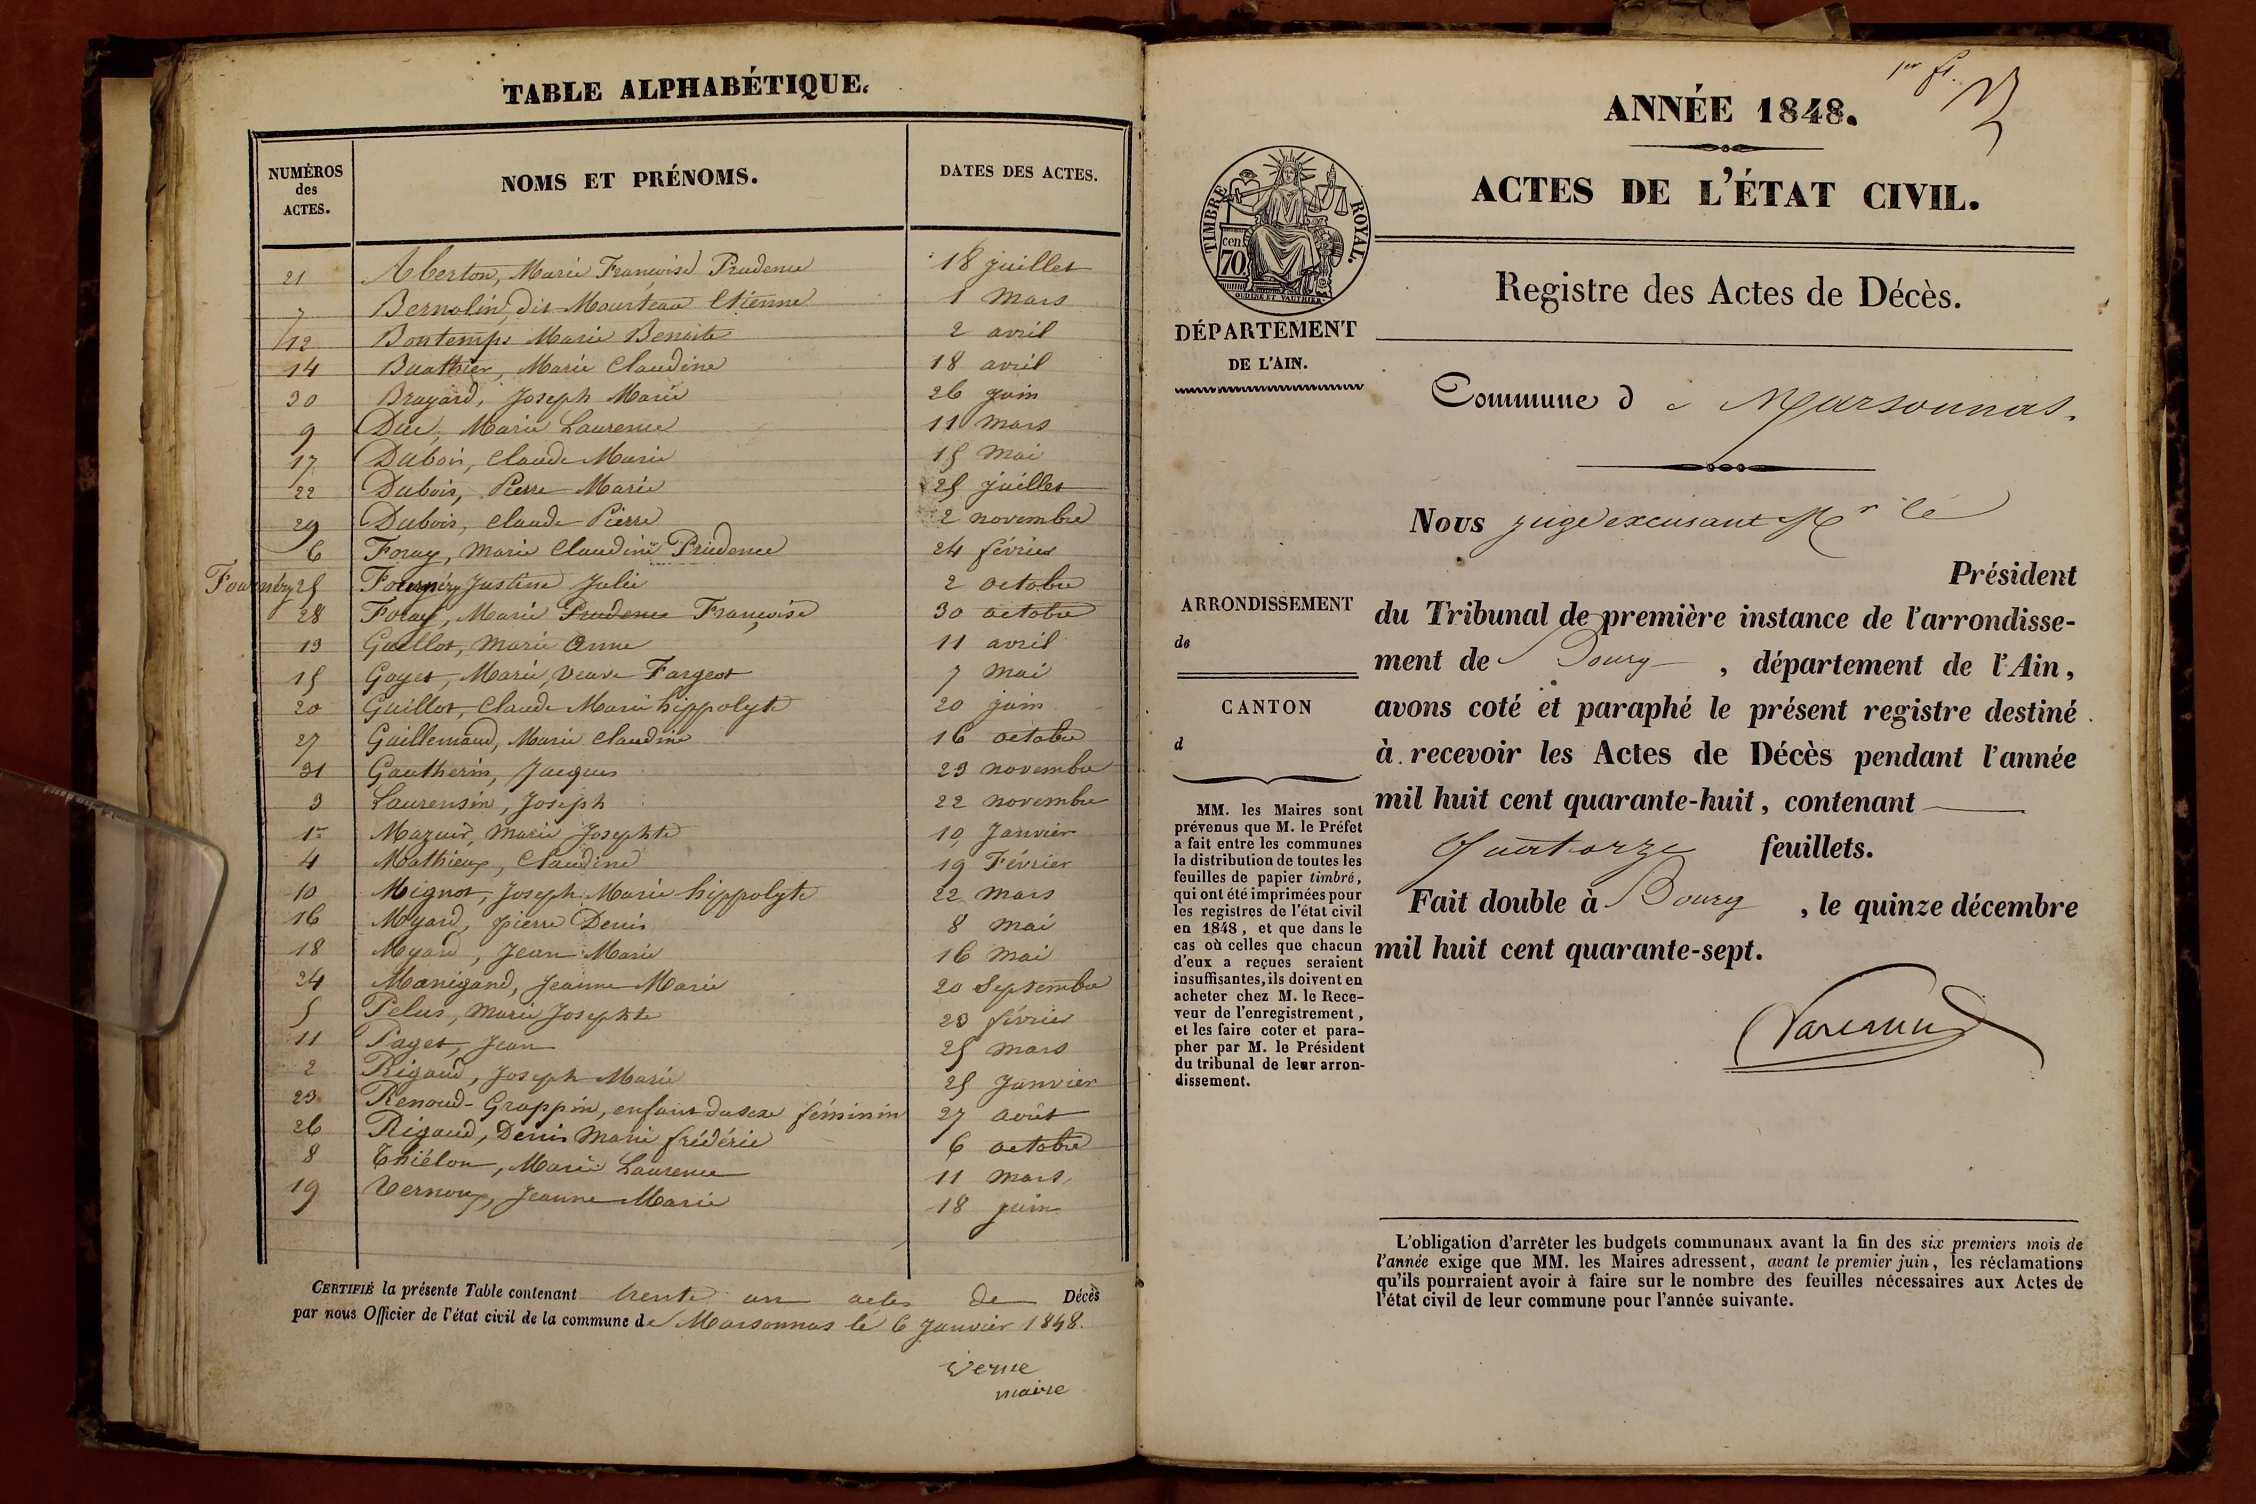 TABLE ALPHABÉTIQUE.
NUMÉROS des ACTES. NOMS ET PRÉNOMS. DATES DES ACTES.
21 Aberton, Marie Françoise Prudence 18 juillet
7 Bernolin, dit Mourteau Etienne 1 Mars
12 Bontemps Marie Benoite 2 avril
14 Buathier, Marie Claudine 18 avril
30 Brayard, Joseph Marie 26 Juin
9 Duc, Marie Laurence 11 Mars
17 Dubois, Claude Marie 15 Mai
22 Dubois, Pierre Marie 25 juillet
29 Dubois, Claude Pierre 2 novembre
6 Foray, Marie Claudine Prudence 24 février
Fournéry 25 Fournéry Justine Julie 2 octobre
28 Foray, Marie Prudence Françoise 30 octobre
13 Guillot, Marie Anne 11 avril
15 Goyet, Marie, veuve Fargeot 7 Mai
20 Guillot, Claude Marie hippolyte 20 juin
27 Guillemaud, Marie Claudine 16 octobre
31 Gautherin, Jacques 23 novembre
3 Laurensin, Joseph 22 novembre
1er Mazuir, Marie Josephte 10 Janvier
4 Mathieux, Claudine 19 Février
10 Mignot, Joseph Marie hippolyte 22 Mars
16 Myard, pierre Denis 8 mai
18 Myard, Jean Marie 16 Mai
24 Manigand, Jeanne Marie 20 Septembre
5 Pelus, Marie Josephte 23 février
11 Paget, Jean 25 Mars
2 Rigaud, Joseph Marie 25 Janvier
23 Renoud-Grappin, enfant du sexe féminin 27 août
26 Rigaud, Denis Marie frédéric 6 octobre
8 Thiélon, Marie Laurence 11 Mars
19 Vernoux, Jeanne Marie 18 juin
CERTIFIÉ la présente Table contenant trente un actes de Décès
par nous Officier de l'état civil de la commune de Marsonnas le 6 Janvier 1848.
Verne
maire
1er ft.
ANNÉE 1848.
ACTES DE L'ÉTAT CIVIL.
TIMBRE ROYAL.
cen. 70
OUDINE ET VAUTHIER
Registre des Actes de Décès.
DÉPARTEMENT
DE L'AIN.
Commune d e Marsonnas.
Nous juge excusant Mr le
Président
du Tribunal de première instance de l'arrondisse-
ment de Bourg, département de l'Ain,
avons coté et paraphé le présent registre destiné
à recevoir les Actes de Décès pendant l'année
mil huit cent quarante-huit, contenant
Quatorze feuillets.
Fait double à Bourg, le quinze décembre
mil huit cent quarante-sept.
ARRONDISSEMENT
de
CANTON
d
MM. les Maires sont
prévenus que M. le Préfet
a fait entre les communes
la distribution de toutes les
feuilles de papier timbré,
qui ont été imprimées pour
les registres de l'état civil
en 1848, et que dans le
cas où celles que chacun
d'eux a reçues seraient
insuffisantes, ils doivent en
acheter chez M. le Rece-
veur de l'enregistrement,
et les faire coter et para-
pher par M. le Président
du tribunal de leur arron-
dissement.
L'obligation d'arrêter les budgets communaux avant la fin des six premiers mois de
l'année exige que MM. les Maires adressent, avant le premier juin, les réclamations
qu'ils pourraient avoir à faire sur le nombre des feuilles nécessaires aux Actes de
l'état civil de leur commune pour l'année suivante.